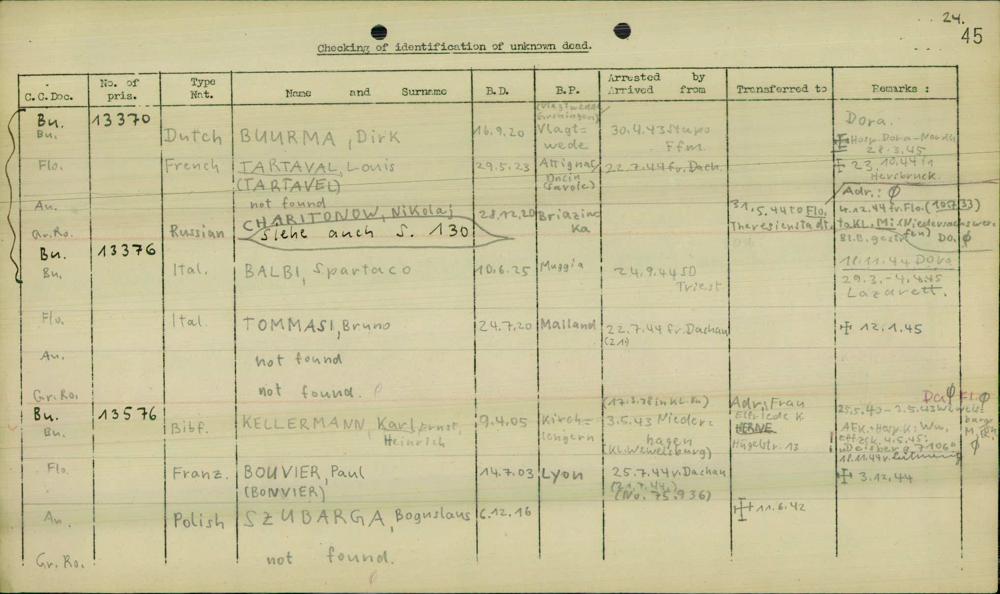 24.
45
Checking of identification of unknown dead.
C.C.Doc. No. of pris. Type Nat. Name and Surname B.D. B.P. Arrested by Arrived from Transferred to Remarks :
Bu. 13370
Bu. Dutch BUURMA, Dirk 16.9.20 Vlagt=wede 30.4.43 Stapo Ffm. Dora.
✠ Hosp. Dora-Nordh.
28.3.45
Flo. French TARTAVAL, Louis 29.5.23 Attignas Oncin (Savoie) 22.7.44 fr. Dach. ✠ 23.10.44 in Hersbruck.
(TARTAVEL)
Au. not found
Gr.Ro. Russian CHARITONOW, Nikolaj 28.12.20 Briazinka 31.5.44 to Flo. Theresienstadt
Siehe auch S. 130
Adr.: Ø
4.12.44 fr. Flo. (10533)
to KL. Mi.
Do. Ø
Bu. 13376
Bu. Ital. BALBI, Spartaco 10.6.25 Muggia 24.9.44 SD Triest 18.11.44 Dora
29.3.-4.4.45
Lazarett.
Flo. Ital. TOMMASI, Bruno 24.7.20 Mailand 22.7.44 fr. Dachau ✠ 12.1.45
Au. not found
Gr.Ro. not found.
Bu. 13576
Bu. Bibf. KELLERMANN, Karl, Ernst, Heinrich 9.4.05 Kirch=lengern 3.5.43 Niederhagen
(KL. Wewelsburg)
Adr. Frau
Elfriede K
HERNE
Hügelstr. 13
Flo. Franz. BOUVIER, Paul 14.7.03 Lyon 25.7.44 v. Dachau ✠ 3.12.44
(BONVIER) (No. 75.936)
Au. Polish SZUBARGA, Boguslaus 6.12.16 ✠ 11.6.42
Gr.Ro. not found.